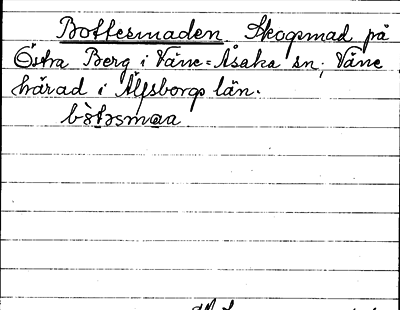 Bottesmaden. Skogsmad på
Östra Berg i Väne-Åsaka sn, Väne
härad i Älfsborgs län.